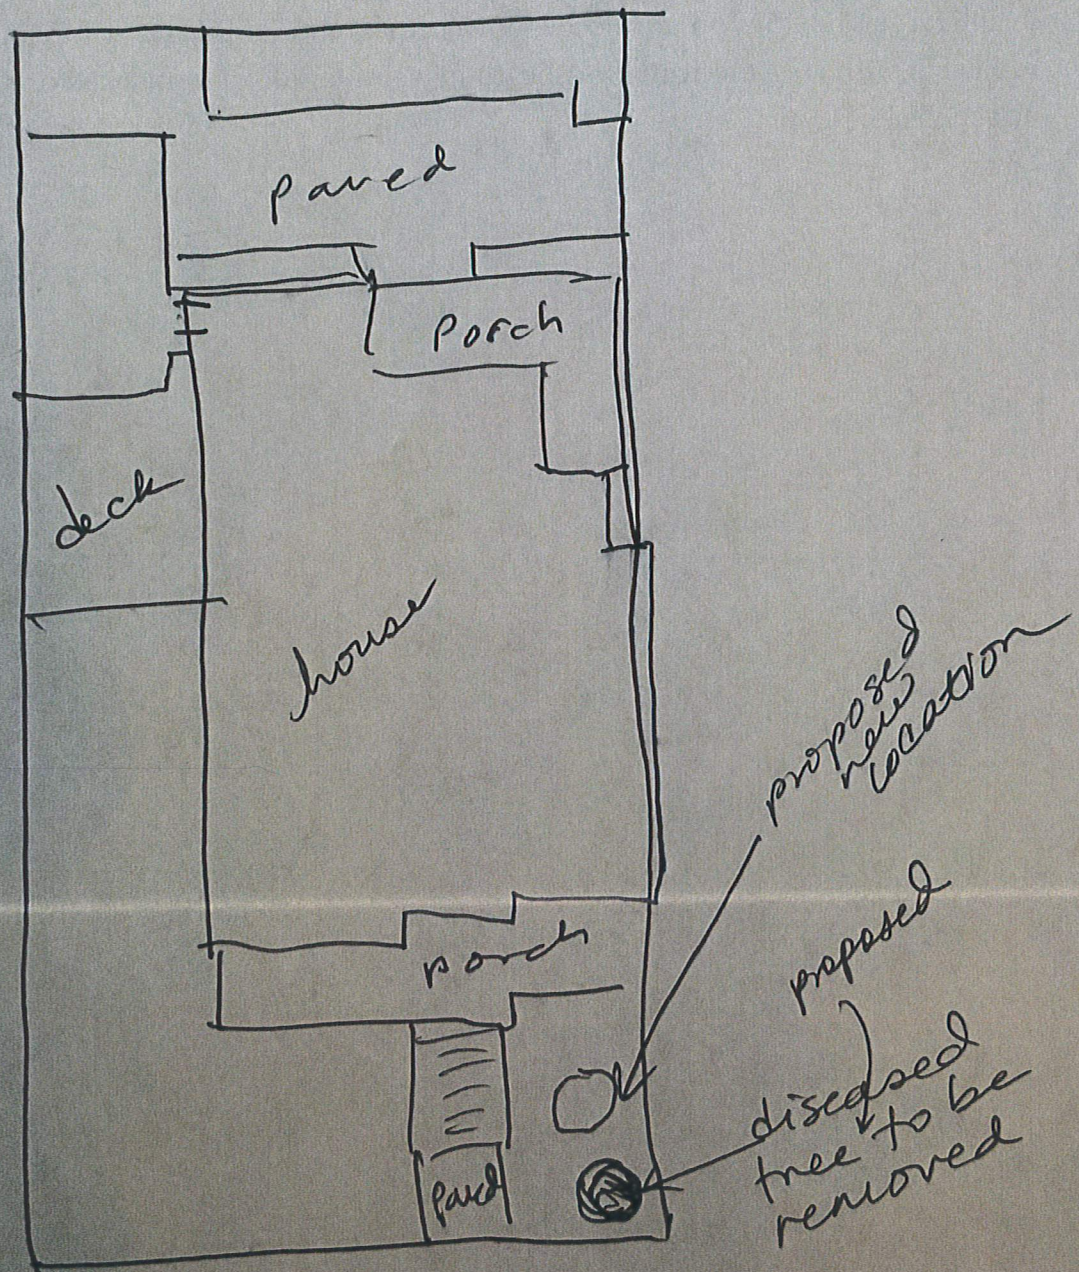 paved
Porch
deck
house
proposed
new
location
porch
proposed
diseased
tree to be
removed
paved